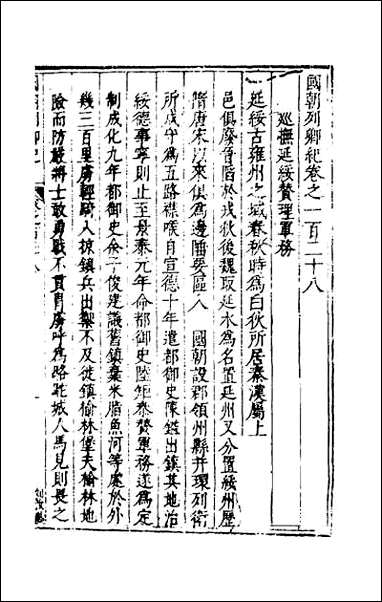 國朝列卿紀卷之一百二十八
巡撫延綏贊理軍務
延綏古雍州之域春秋時為白狄所居秦漢屬上
邑俱廢晉陷於戎狄後魏取延水為名置延州又分置綏州歷
隋唐宋以來俱為邊陲要區入 國朝設郡領州縣并環列衛
所戍守為五路襟喉自宣德十年遣都御史陳鎰出鎮其地治
綏德事寧則止至景泰元年命都御史陸矩泰贊軍務遂為定
制成化九年都御史余子俊建議舊鎮棄米脂魚河等處於外
幾三百里虜輕騎入掠鎮兵出禦不及徙鎮榆林堡夫榆林地
險而防嚴將士敢勇戰不貫冑虜呼為駱駝城人馬見則畏之